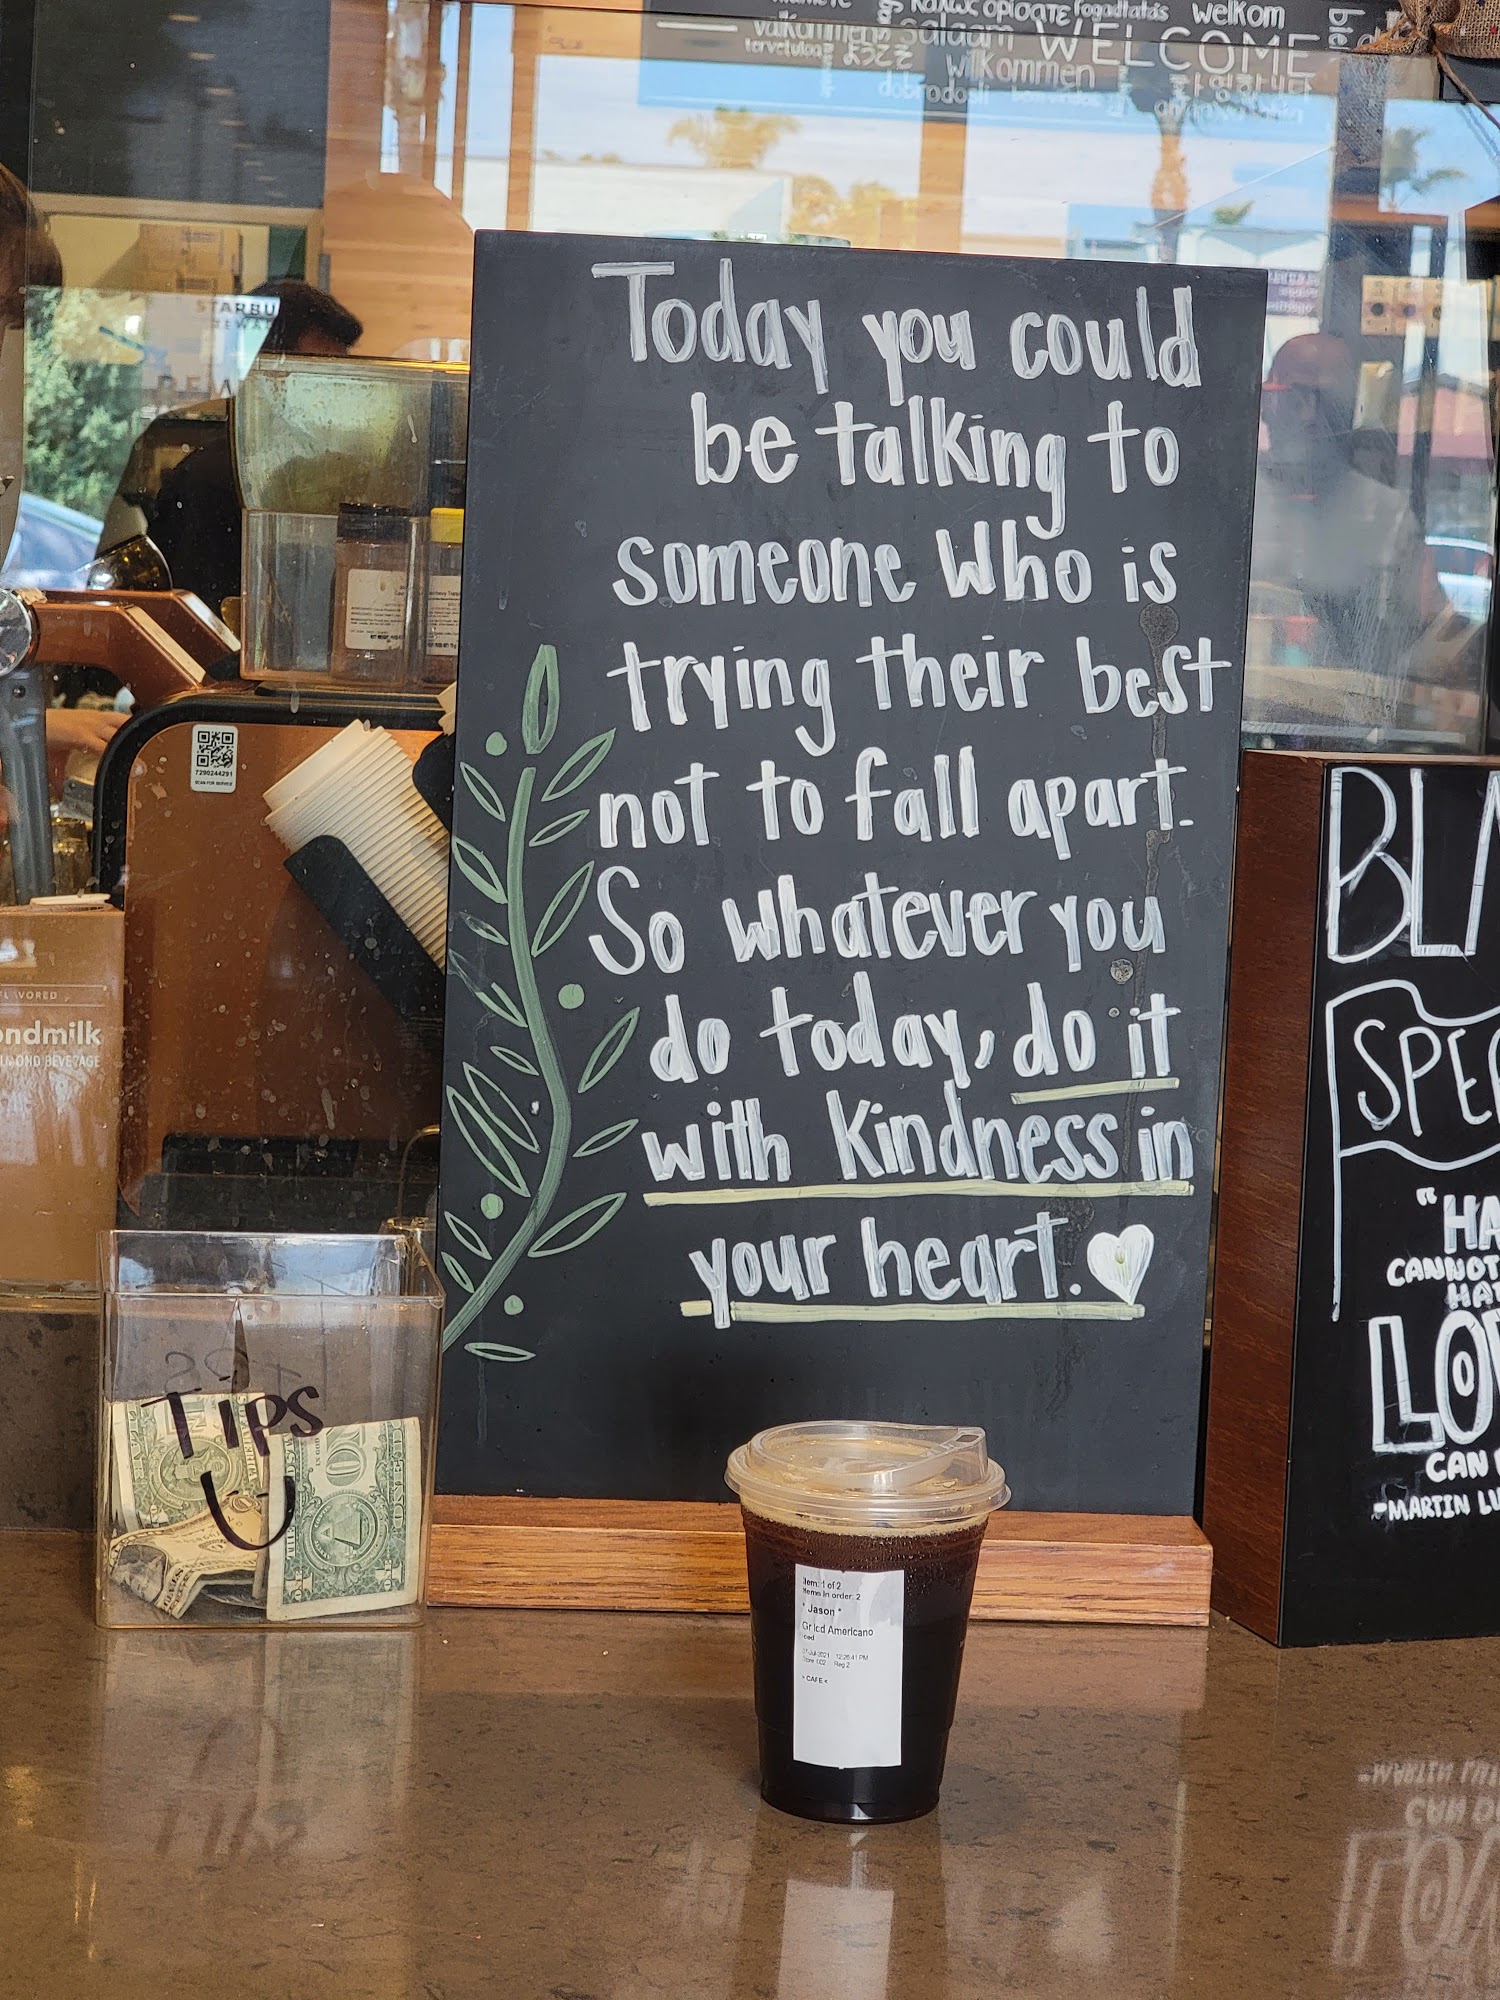 Καλώς ορίσατε fogadtatás welkom
välkommen salaam WELCOME
tervetuloa ようこそ wilkommen
dobrodosli
STARBU
REWA
Today you could
be talking to
someone who is
trying their best
not to fall apart.
So whatever you
do today, do it
with kindness in
your heart.
7290244291
SCAN FOR SERVICE
ondmilk
Tips
Item: 1 of 2
Items in order: 2
* Jason *
Gr Icd Americano
Iced
12:26:41 PM
Reg 2
> CAFE <
BLA
SPEC
"HA
CANNOT
HAT
LOV
CAN
-MARTIN LU